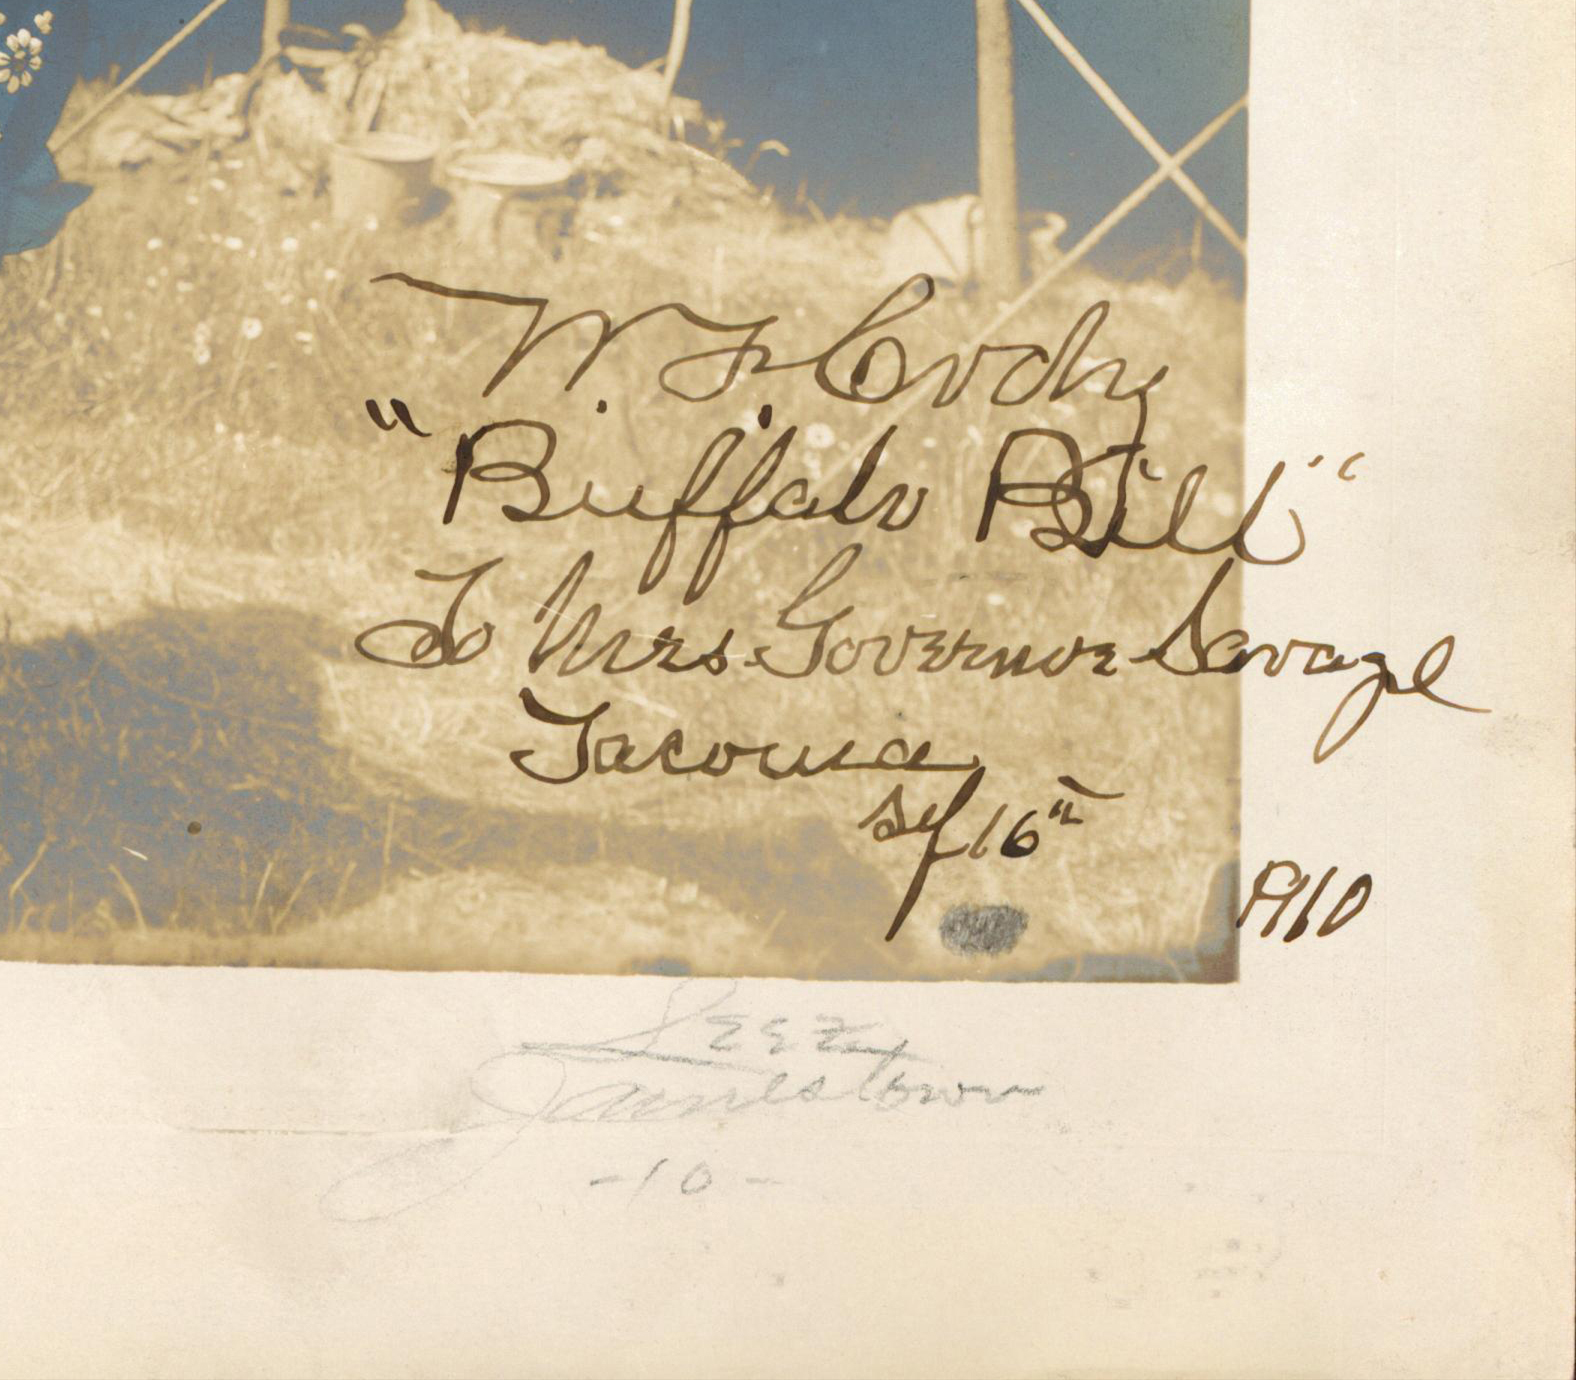 W. F. Cody
"Buffalo Bill"
To Mrs. Governor Savage
Tacoma
Sep 16th
1910
Jamestown
-10-